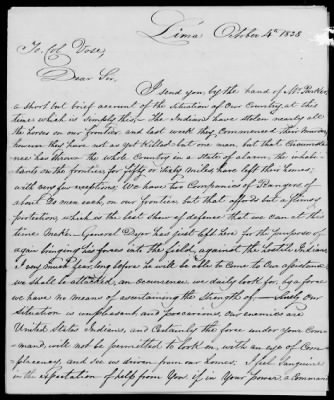 Lima October 4th 1838
To Col Vose,
Dear Sir,
I send you, by the hand of Mr. Parker,
a short but brief account of the Situation of Our Country, at this
time which is simply this. The Indians have stolen nearly all
the horses on our frontier, and last week they Commenced their murders
however they have not as yet Killed but one man, but that Circumstance
has thrown the whole Country in a state of alarm, the inhabi-
tants on the frontier, for fifty or Sixty miles have left their homes,
with very few exceptions. We have two Companies of Rangers of
about 20 men each, on our frontier but that affords but a flimsy
protection, which is the best show of defence that we can at this
time make. General Dyer has just left here for the purpose of
again bringing his forces into the field, against the hostile Indians
I very much fear, long before he will be able to Come to Our assistance
we shall be attacked, an Occurrence we daily look for, by a force
we have no means of ascertaining the Strength of. Surely Our
Situation is unpleasant, and precarious, our enemies are
United States Indians, and Certainly the force under your Com-
mand, will not be permitted to look on, with an eye of Com-
placency, and see us driven from our homes. I feel Sanguine
in the expectation of help from You, if in Your power, a Command